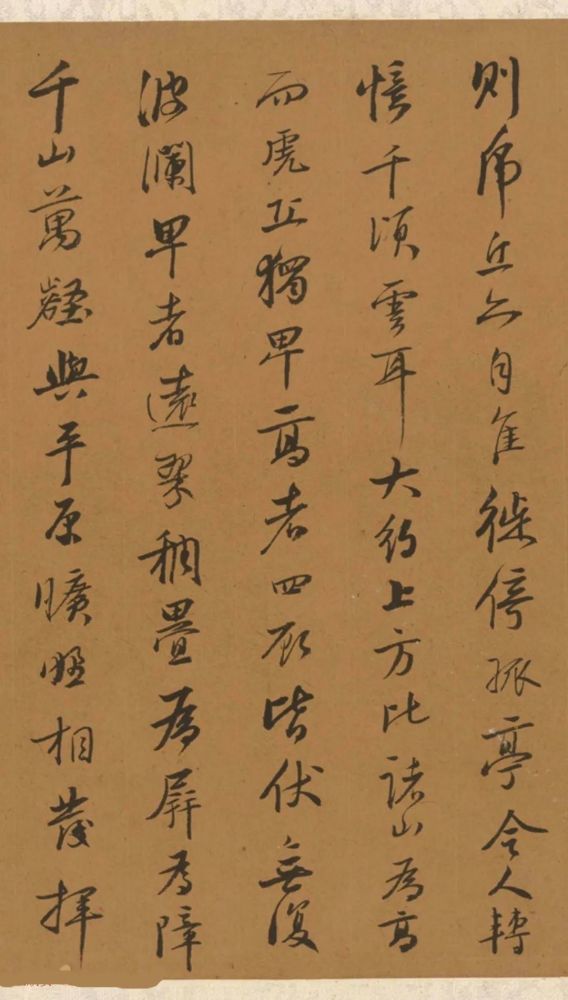 则虎丘亦自佳徙倚孤亭令人轉
憶千頃雲耳大約上方比諸山為高
而虎丘獨卑高者四顾皆伏無復
波瀾卑者遠翠稠疊為屏為障
千山萬壑與平原曠野相發揮